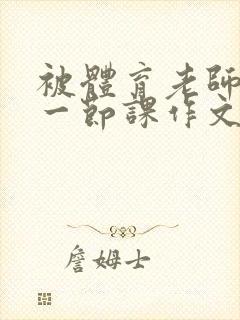 被體育老師
一節課作文
詹姆士